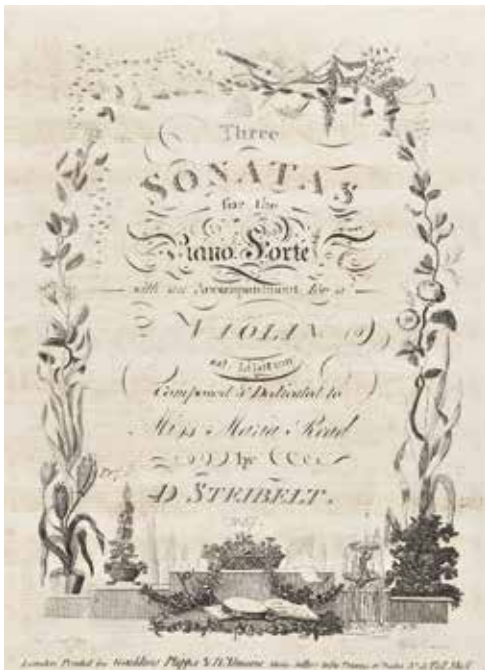 Three
SONATAS
for the
Piano Forte
with an Accompaniment for a
VIOLIN
ad Libitum
Composed & Dedicated to
Miss Maria Read
by
D STEIBELT.
London Printed by Goulding Phipps & D'Almaine Music Sellers to the Prince of Wales Pall Mall